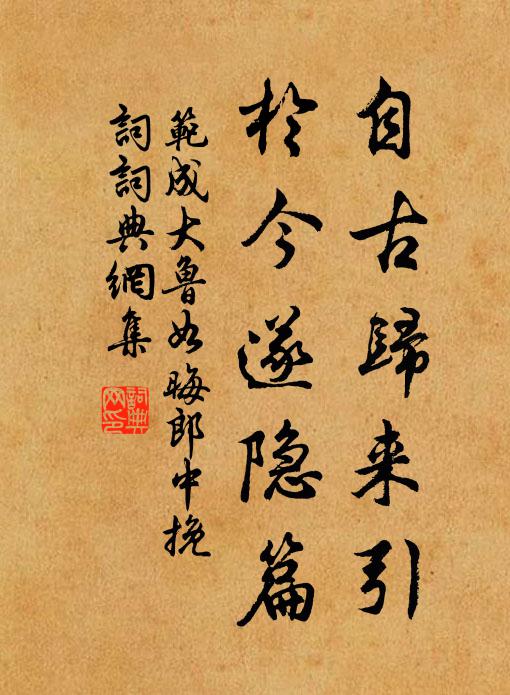 自古歸来引
於今遂隐篇
範成大魯如晦郎中挽
詞詞典網集
詞典網印